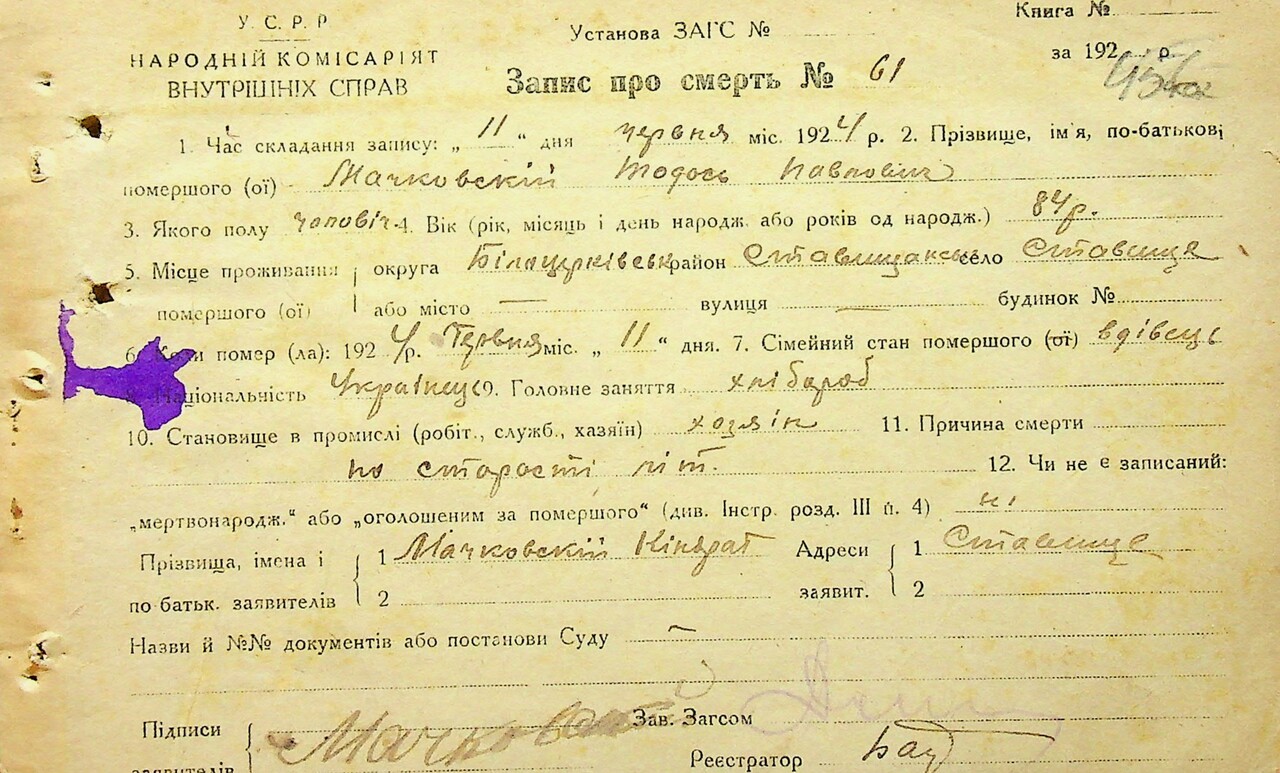 У. С. Р. Р
НАРОДНІЙ КОМІСАРІЯТ
ВНУТРІШНІХ СПРАВ
Установа ЗАГС №
Книга №
за 192 р.
Запис про смерть № 61
1. Час складання запису: „ 11 “ дня червня міс. 1924 р. 2. Прізвище, ім'я, по-батькові
помершого (ої) Мачковскій Тодось Павлович
3. Якого полу чоловіч. 4. Вік (рік, місяць і день народж. або років од народж.) 84 р.
5. Місце проживання помершого (ої) округа Білоцерківськ район Ставищанськ село Ставища
або місто — вулиця — будинок №
6. Коли помер (ла): 1924 р. Червня міс. „ 11 “ дня. 7. Сімейний стан помершого (ої) вдівець
8. Національність Українець 9. Головне заняття хлібороб
10. Становище в промислі (робіт., служб., хазяїн) хозяін 11. Причина смерти
по старості літ. 12. Чи не є записаний:
„мертвонародж.“ або „оголошеним за помершого“ (див. Інстр. розд. III п. 4) ні
Прізвища, імена і по батьк. заявителів 1 Мачковскій Кіндрат Адреси заявит. 1 Ставище
2 2
Назви й №№ документів або постанови Суду —
Підписи заявителів Зав. Загсом
Реєстратор